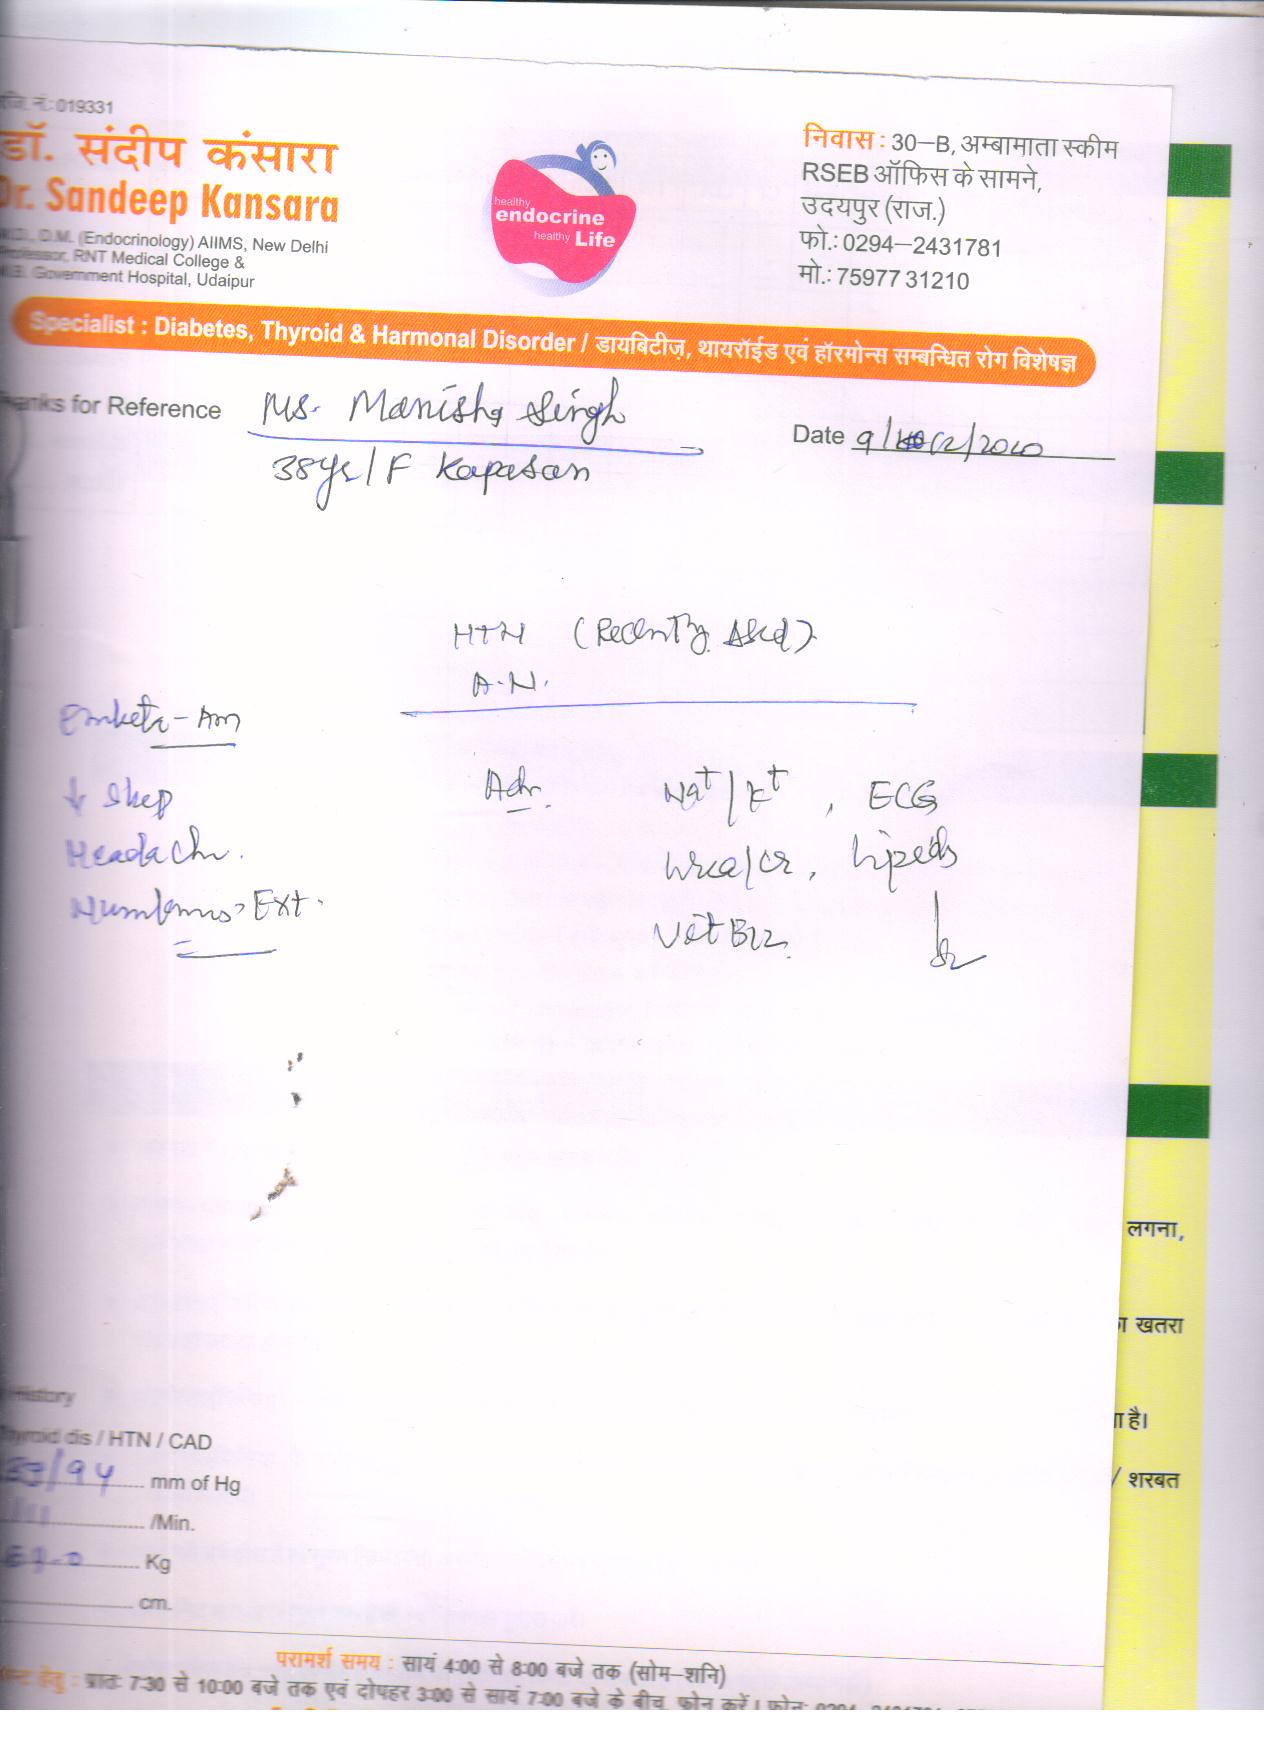 रजि. नं.: 019331
डॉ. संदीप कंसारा
Dr. Sandeep Kansara
D.M. (Endocrinology) AIIMS, New Delhi
Professor, RNT Medical College &
Government Hospital, Udaipur
healthy
endocrine
healthy Life
निवास : 30–B, अम्बामाता स्कीम
RSEB ऑफिस के सामने,
उदयपुर (राज.)
फो.: 0294–2431781
मो.: 75977 31210
Specialist : Diabetes, Thyroid & Harmonal Disorder / डायबिटीज़, थायरॉईड एवं हॉरमोन्स सम्बन्धित रोग विशेषज्ञ
Thanks for Reference Ms. Manisha Singh
Date 9/12/2020
38yr/F Kapasan
HTN (Recently
A.N.
- Am
↓ Sleep
Headache.
Numbness Ext.
Adv. Na+/K+, ECG
Urea/Cr, Lipids
Vit B12.
History
Thyroid dis / HTN / CAD
/94 mm of Hg
/Min.
Kg
cm.
लगना,
खतरा
है।
/ शरबत
परामर्श समय : सायं 4:00 से 8:00 बजे तक (सोम–शनि)
हेतु : प्रातः 7:30 से 10:00 बजे तक एवं दोपहर 3:00 से सायं 7:00 बजे के बीच, फोन करें। फोन: